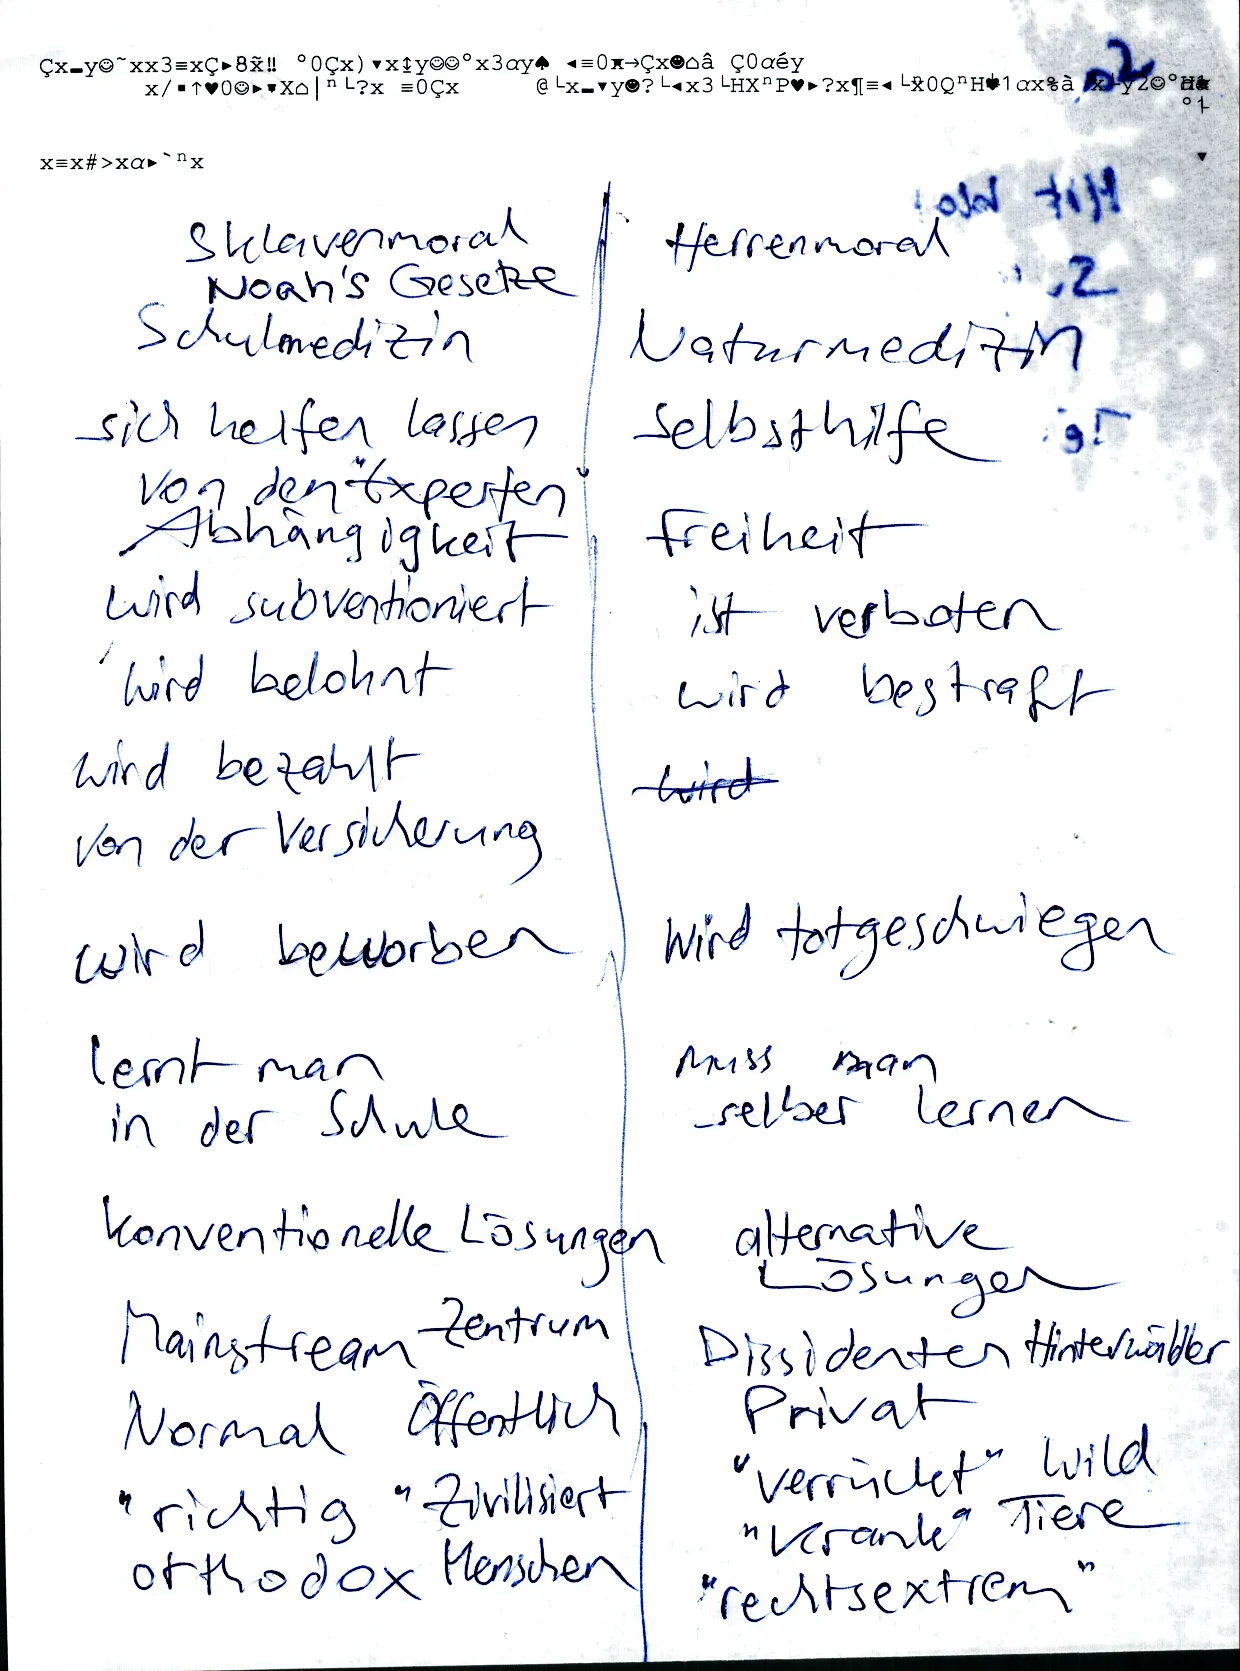 Sklavenmoral
Noah's Gesetze
Schulmedizin
sich helfen lassen
von den "Experten
Abhängigkeit
wird subventioniert
wird belohnt
wird bezahlt
von der Versicherung
wird beworben
lernt man
in der Schule
konventionelle Lösungen
Mainstream Zentrum
Normal Öffentlich
"richtig" Zivilisiert
orthodox Menschen
Herrenmoral
Naturmedizin
Selbsthilfe
Freiheit
ist verboten
wird bestraft
wird
wird totgeschwiegen
muss man
selber lernen
alternative
Lösungen
Dissidenten Hinterwäldler
Privat
"verrückt" wild
"krank" Tiere
"rechtsextrem"